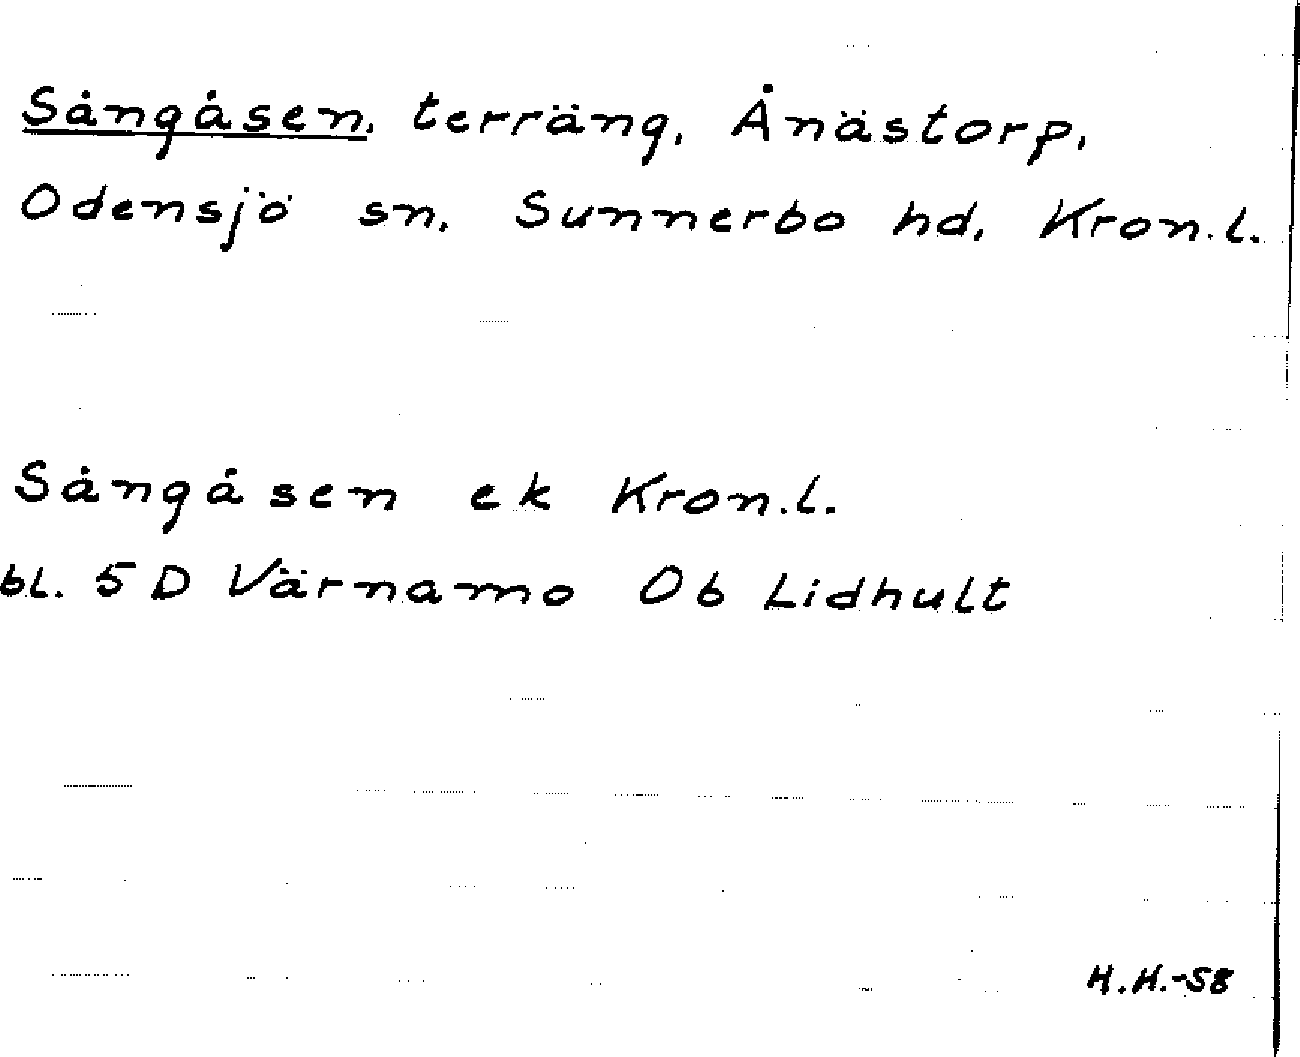 Sångåsen, terräng, Ånästorp,
Odensjö sn, Sunnerbo hd, Kron.l.
Sångåsen ek Kron.l.
bl. 5 D Värnamo Ob Lidhult
H.H.-58